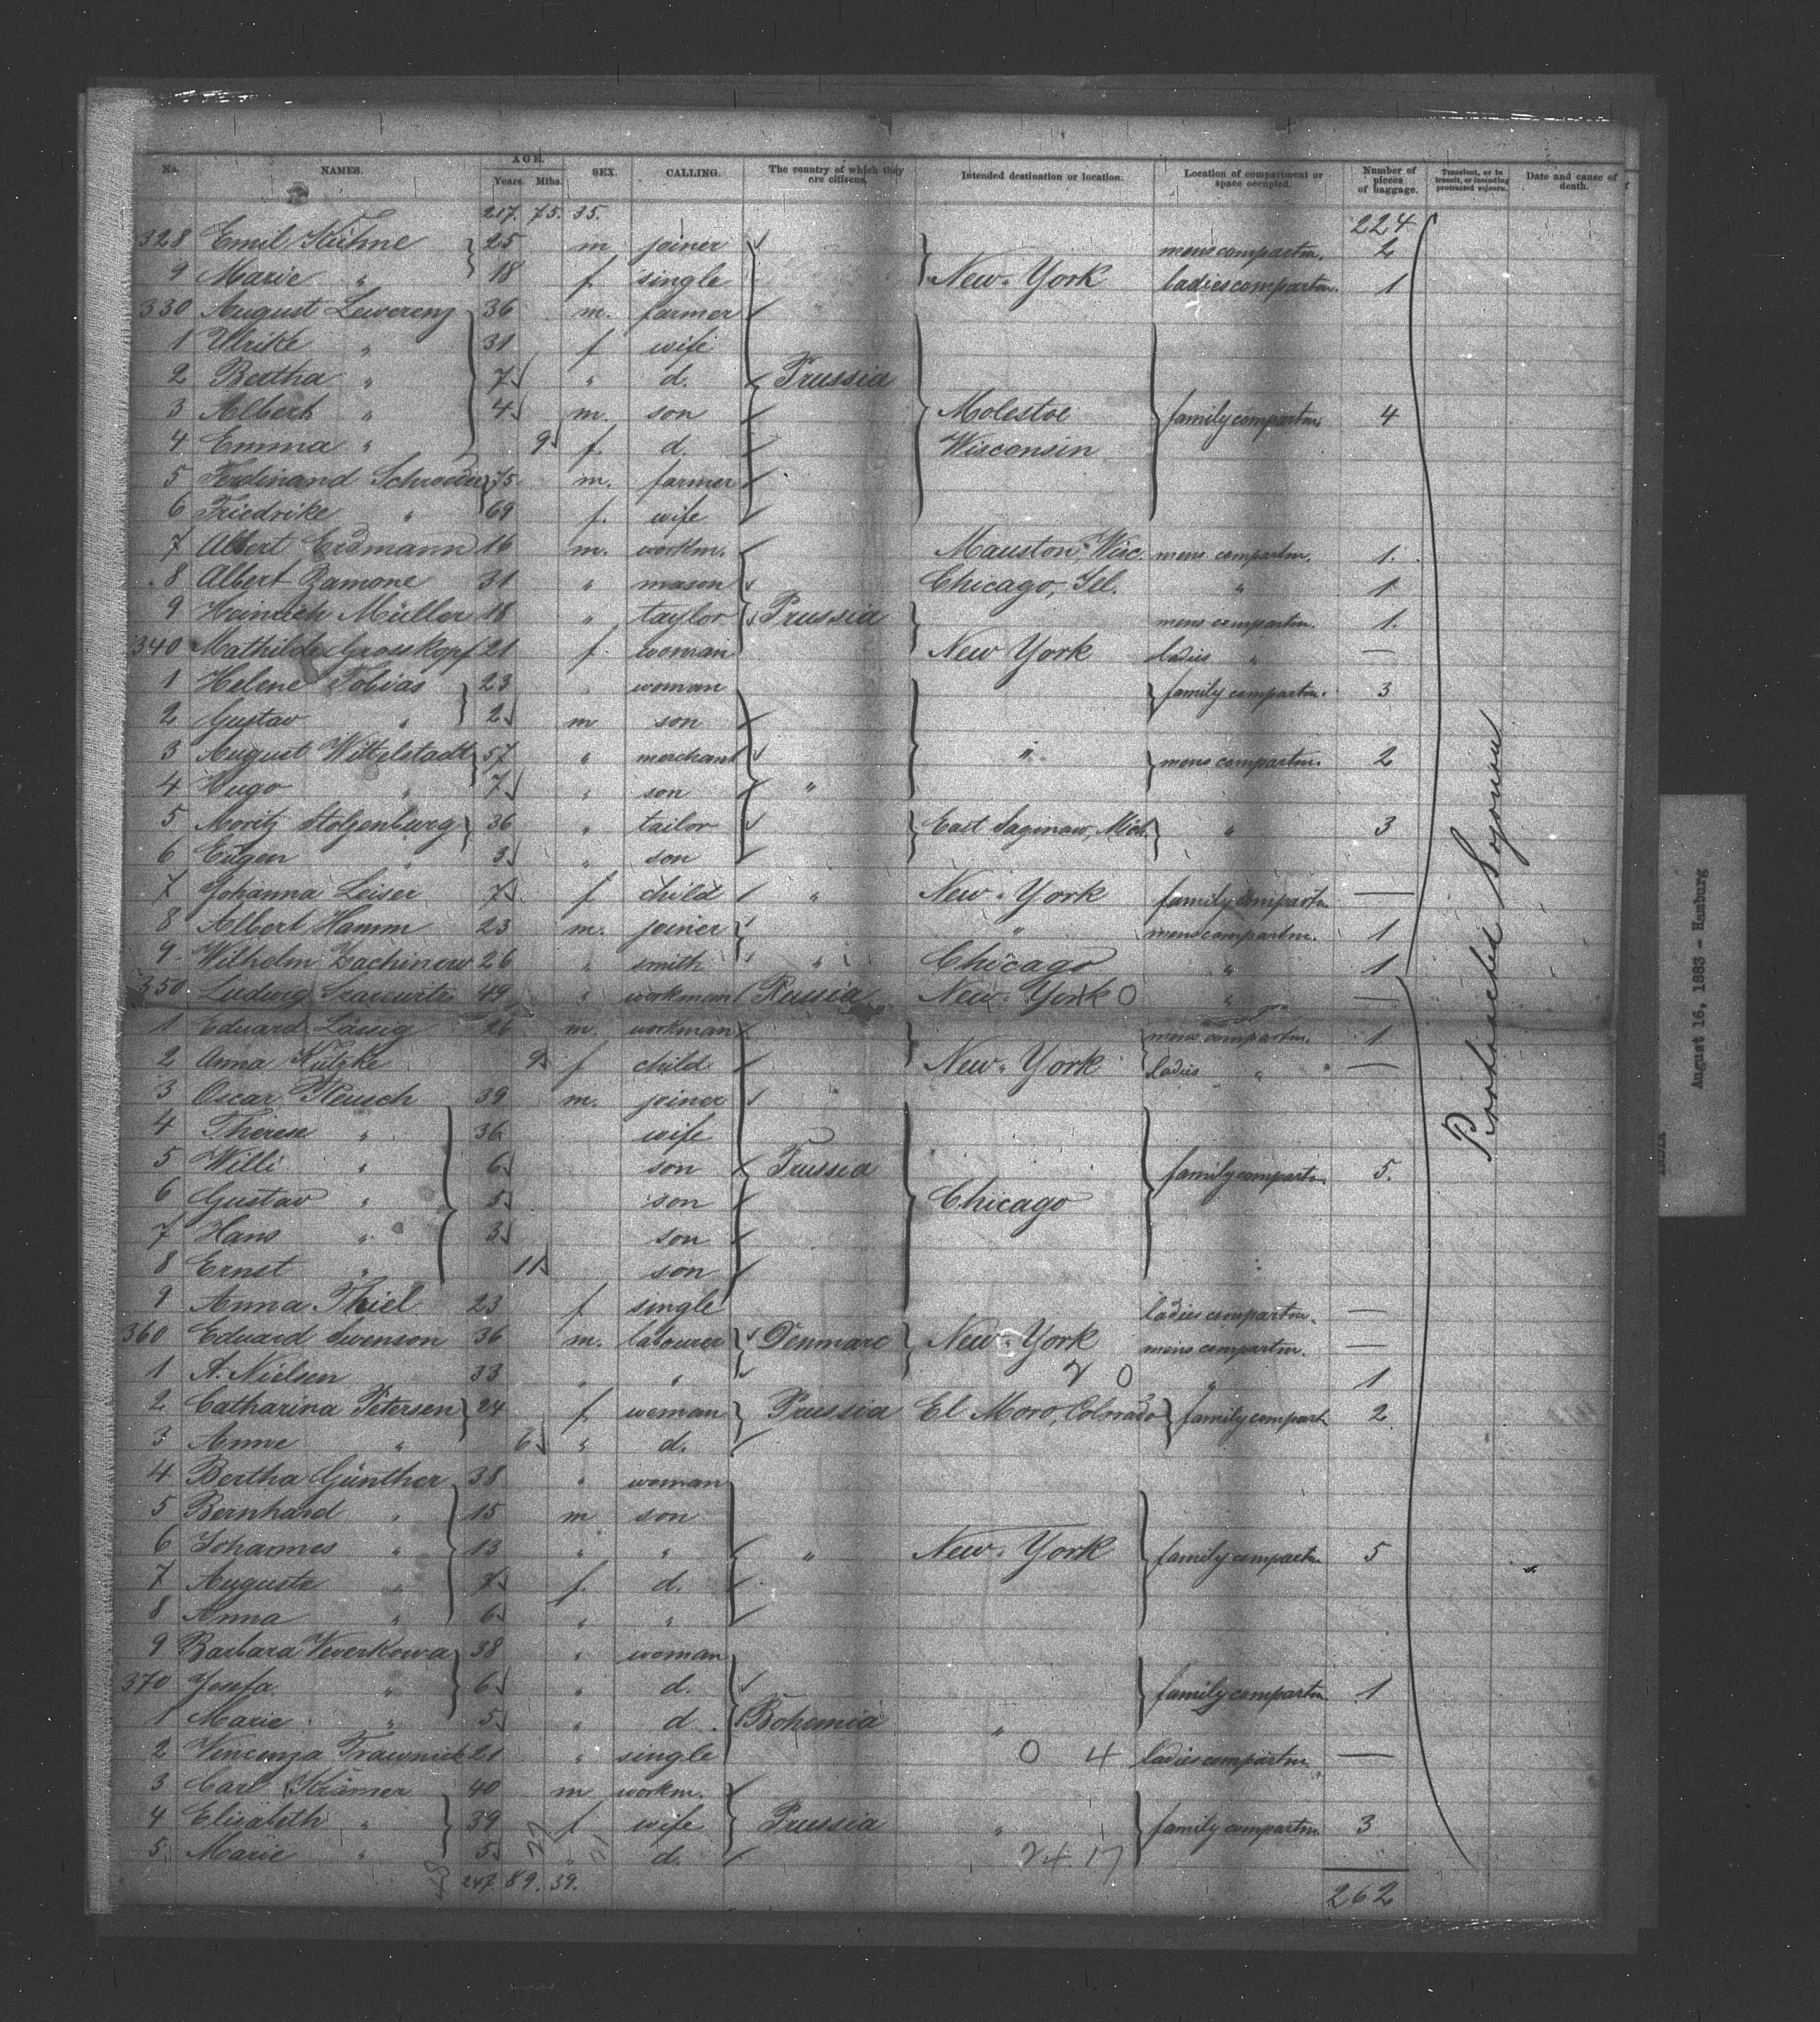 No. NAMES. AGE. Years. Mths. SEX. CALLING. The country of which they are citizens. Intended destination or location. Location of compartment or space occupied. Number of pieces of baggage. Transient, or in transit, or intending protracted sojourn. Date and cause of death.
217. 75. 35. 224
328 Emil Kühne 25 m joiner mens compartm. 2
9 Marie " 18 f. single New-York ladies compartm. 1
330 August Lewerenz 36 m. farmer
1 Ulrike " 31 f wife
2 Bertha " 7 " d. Prussia
3 Albert " 4 m. son Molestoe family compartm. 4
4 Emma " 9 f. d. Wisconsin
5 Ferdinand Schroeder 75 m. farmer
6 Friedrike " 69 f. wife
7 Albert Erdmann 16 m. workm. Mauston, Wisc. mens compartm. 1.
8 Albert Ramone 31 " mason Chicago, Ill. " 1
9 Heinrich Müller 18 " taylor Prussia mens compartm. 1.
340 Mathilde Grosskopf 21 f. woman New York ladies " —
1 Helene Tobias 23 " woman family compartm. 3
2 Gustav " 2 m son
3 August Wittelstadt 57 " merchant " mens compartm. 2
4 Hugo " 7 " son "
5 Moritz Stolzenburg 36 " tailor East Saginaw, Mich. " 3
6 Eugen " 3 " son
7 Johanna Leiser 7 f child " New-York family compartm. —
8 Albert Hamm 23 m. joiner " mens compartm. 1
9 Wilhelm Zachinow 26 " smith " Chicago " 1
350 Ludwig 49 " workman Russia New-York 0 " —
1 Eduard Lässig 26 m. workman mens compartm. 1
2 Anna Kutzke 9 f child New-York ladies " —
3 Oscar Reusch 39 m. joiner
4 Therese " 36 wife
5 Willi " 6 son Prussia family compartm. 5.
6 Gustav " 5 son Chicago
7 Hans " 3 son
8 Ernst " 11 son
9 Anna Thiel 23 f single ladies compartm. —
360 Eduard Swenson 36 m. labourer Denmarc New-York mens compartm. —
1 A. Nielsen 33 " " 2 0 " 1
2 Catharina Petersen 24 f. woman Prussia El Moro, Colorado family compart. 2
3 Anne " 6 " d.
4 Bertha Günther 38 " woman
5 Bernhard " 15 m son
6 Johannes " 13 " " " New-York family compartm 5
7 Auguste " 7 f. d.
8 Anna " 6 " "
9 Barbara Veverkowa 38 " woman
370 Josefa " 6 " d. family compartm. 1
1 Marie " 5 " d Bohemia "
2 Vincenza Trawnick 21 " single 0 4 ladies compartm. —
3 Carl Krämer 40 m workm.
4 Elisabeth " 39 f wife Prussia " family compartm 3
5 Marie " 5 " d. 24 17
247. 89. 39. 262
Protracted Sojourn
August 16, 1883 - Hamburg